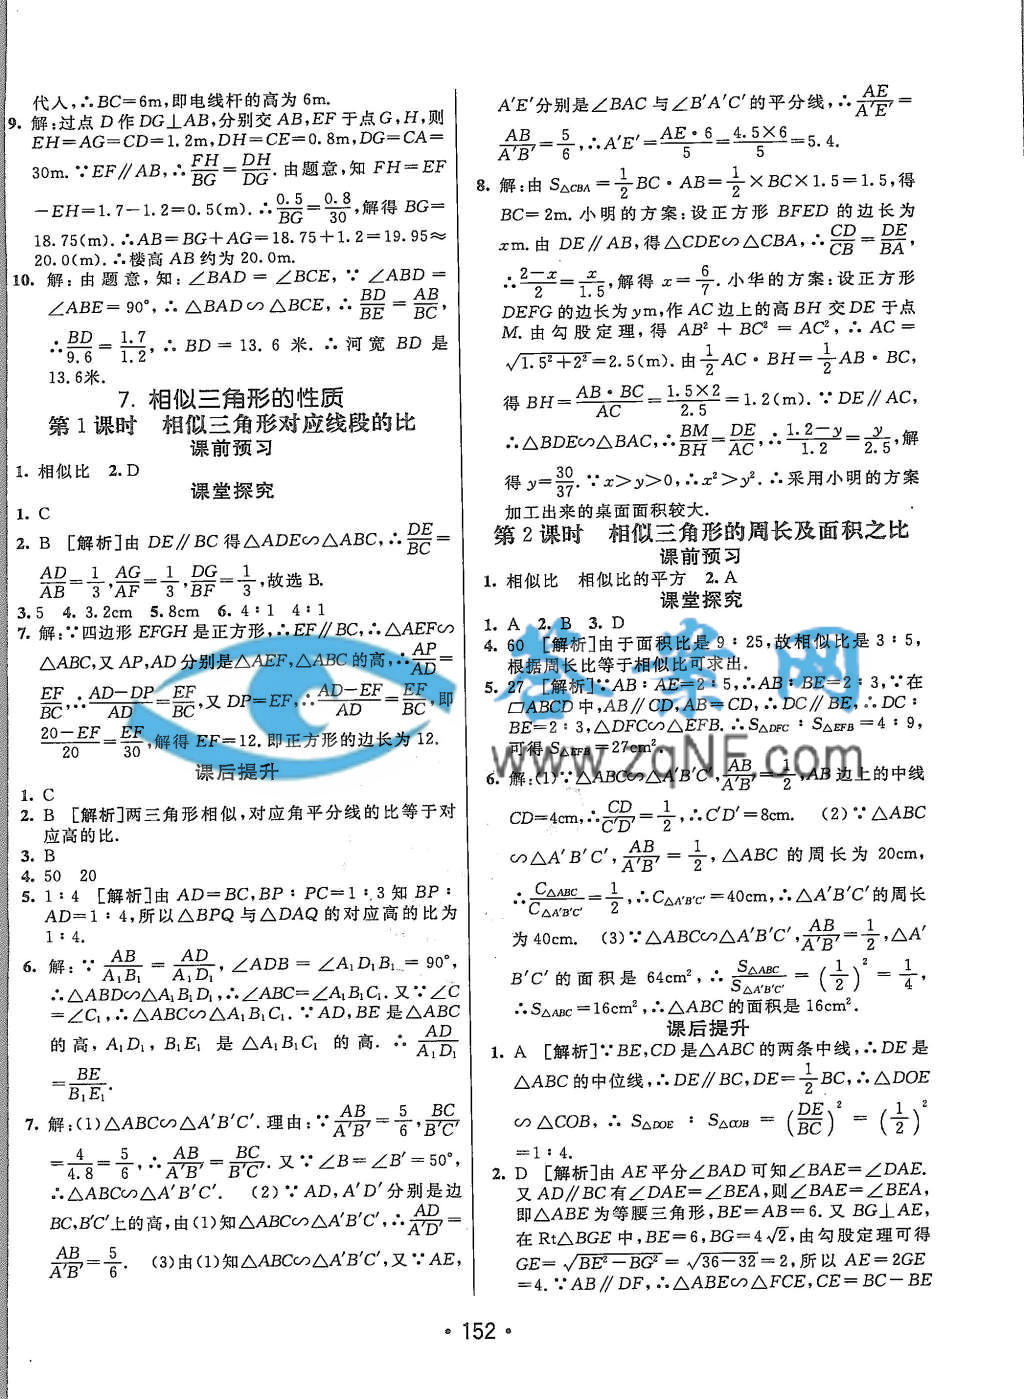 代入,∴BC=6m,即电线杆的高为6m.
9. 解:过点D作DG⊥AB,分别交AB,EF于点G,H,则
EH=AG=CD=1.2m,DH=CE=0.8m,DG=CA=
30m.∵EF∥AB,∴FH/BG=DH/DG.由题意,知FH=EF
-EH=1.7-1.2=0.5(m).∴0.5/BG=0.8/30,解得BG=
18.75(m).∴AB=BG+AG=18.75+1.2=19.95≈
20.0(m).∴楼高AB约为20.0m.
10. 解:由题意,知:∠BAD=∠BCE,∵∠ABD=
∠ABE=90°,∴△BAD∽△BCE,∴BD/BE=AB/BC,
∴BD/9.6=1.7/1.2,∴BD=13.6米.∴河宽BD是
13.6米.
7. 相似三角形的性质
第1课时 相似三角形对应线段的比
课前预习
1. 相似比 2. D
课堂探究
1. C
2. B [解析]由DE∥BC得△ADE∽△ABC,∴DE/BC=
AD/AB=1/3,AG/AF=1/3,DG/BF=1/3,故选B.
3. 5 4. 3.2cm 5. 8cm 6. 4∶1 4∶1
7. 解:∵四边形EFGH是正方形,∴EF∥BC,∴△AEF∽
△ABC,又AP,AD分别是△AEF,△ABC的高,∴AP/AD=
EF/BC,∴AD-DP/AD=EF/BC,又DP=EF,∴AD-EF/AD=EF/BC,即
20-EF/20=EF/30,解得EF=12.即正方形的边长为12.
课后提升
1. C
2. B [解析]两三角形相似,对应角平分线的比等于对
应高的比.
3. B
4. 50 20
5. 1∶4 [解析]由AD=BC,BP∶PC=1∶3知BP∶
AD=1∶4,所以△BPQ与△DAQ的对应高的比为
1∶4.
6. 解:∵AB/A₁B₁=AD/A₁D₁,∠ADB=∠A₁D₁B₁=90°,
∴△ABD∽△A₁B₁D₁,∴∠ABC=∠A₁B₁C₁.又∵∠C
=∠C₁,∴△ABC∽△A₁B₁C₁.∵AD,BE是△ABC
的高,A₁D₁,B₁E₁是△A₁B₁C₁的高.∴AD/A₁D₁
=BE/B₁E₁.
7. 解:(1)△ABC∽△A′B′C′.理由:∵AB/A′B′=5/6,BC/B′C′
=4/4.8=5/6,∴AB/A′B′=BC/B′C′.又∵∠B=∠B′=50°,
∴△ABC∽△A′B′C′. (2)∵AD,A′D′分别是边
BC,B′C′上的高,由(1)知△ABC∽△A′B′C′,∴AD/A′D′=
AB/A′B′=5/6. (3)由(1)知△ABC∽△A′B′C′,又∵AE,
A′E′分别是∠BAC与∠B′A′C′的平分线,∴AE/A′E′=
AB/A′B′=5/6,∴A′E′=AE·6/5=4.5×6/5=5.4.
8. 解:由S△CBA=1/2BC·AB=1/2×BC×1.5=1.5,得
BC=2m.小明的方案:设正方形BFED的边长为
xm.由DE∥AB,得△CDE∽△CBA,∴CD/CB=DE/BA,
∴2-x/2=x/1.5,解得x=6/7.小华的方案:设正方形
DEFG的边长为ym,作AC边上的高BH交DE于点
M.由勾股定理,得AB²+BC²=AC²,∴AC=
√1.5²+2²=2.5(m).由1/2AC·BH=1/2AB·BC,
得BH=AB·BC/AC=1.5×2/2.5=1.2(m).∵DE∥AC,
∴△BDE∽△BAC,∴BM/BH=DE/AC,∴1.2-y/1.2=y/2.5,解
得y=30/37.∵x>y>0,∴x²>y².∴采用小明的方案
加工出来的桌面面积较大.
第2课时 相似三角形的周长及面积之比
课前预习
1. 相似比 相似比的平方 2. A
课堂探究
1. A 2. B 3. D
4. 60 [解析]由于面积比是9∶25,故相似比是3∶5,
根据周长比等于相似比可求出.
5. 27 [解析]∵AB∶AE=2∶5,∴AB∶BE=2∶3,∵在
□ABCD中,AB∥CD,AB=CD,∴DC∥BE,∴DC∶
BE=2∶3,∴△DFC∽△EFB.∴S△DFC∶S△EFB=4∶9,
可得S△EFB=27cm².
6. 解:(1)∵△ABC∽△A′B′C′,AB/A′B′=1/2,AB边上的中线
CD=4cm,∴CD/C′D′=1/2,∴C′D′=8cm. (2)∵△ABC
∽△A′B′C′,AB/A′B′=1/2,△ABC的周长为20cm,
∴C△ABC/C△A′B′C′=1/2,∴C△A′B′C′=40cm,∴△A′B′C′的周长
为40cm. (3)∵△ABC∽△A′B′C′,AB/A′B′=1/2,△A′
B′C′的面积是64cm²,∴S△ABC/S△A′B′C′=(1/2)²=1/4,
∴S△ABC=16cm²,∴△ABC的面积是16cm².
课后提升
1. A [解析]∵BE,CD是△ABC的两条中线,∴DE是
△ABC的中位线,∴DE∥BC,DE=1/2BC,∴△DOE
∽△COB,∴S△DOE∶S△COB=(DE/BC)²=(1/2)²
=1∶4.
2. D [解析]由AE平分∠BAD可知∠BAE=∠DAE.
又AD∥BC有∠DAE=∠BEA,则∠BAE=∠BEA,
即△ABE为等腰三角形,BE=AB=6.又BG⊥AE,
在Rt△BGE中,BE=6,BG=4√2,由勾股定理可得
GE=√BE²-BG²=√36-32=2,所以AE=2GE
=4.∵AB∥DF,∴△ABE∽△FCE,CE=BC-BE
·152·
答案网
www.zqNF.com